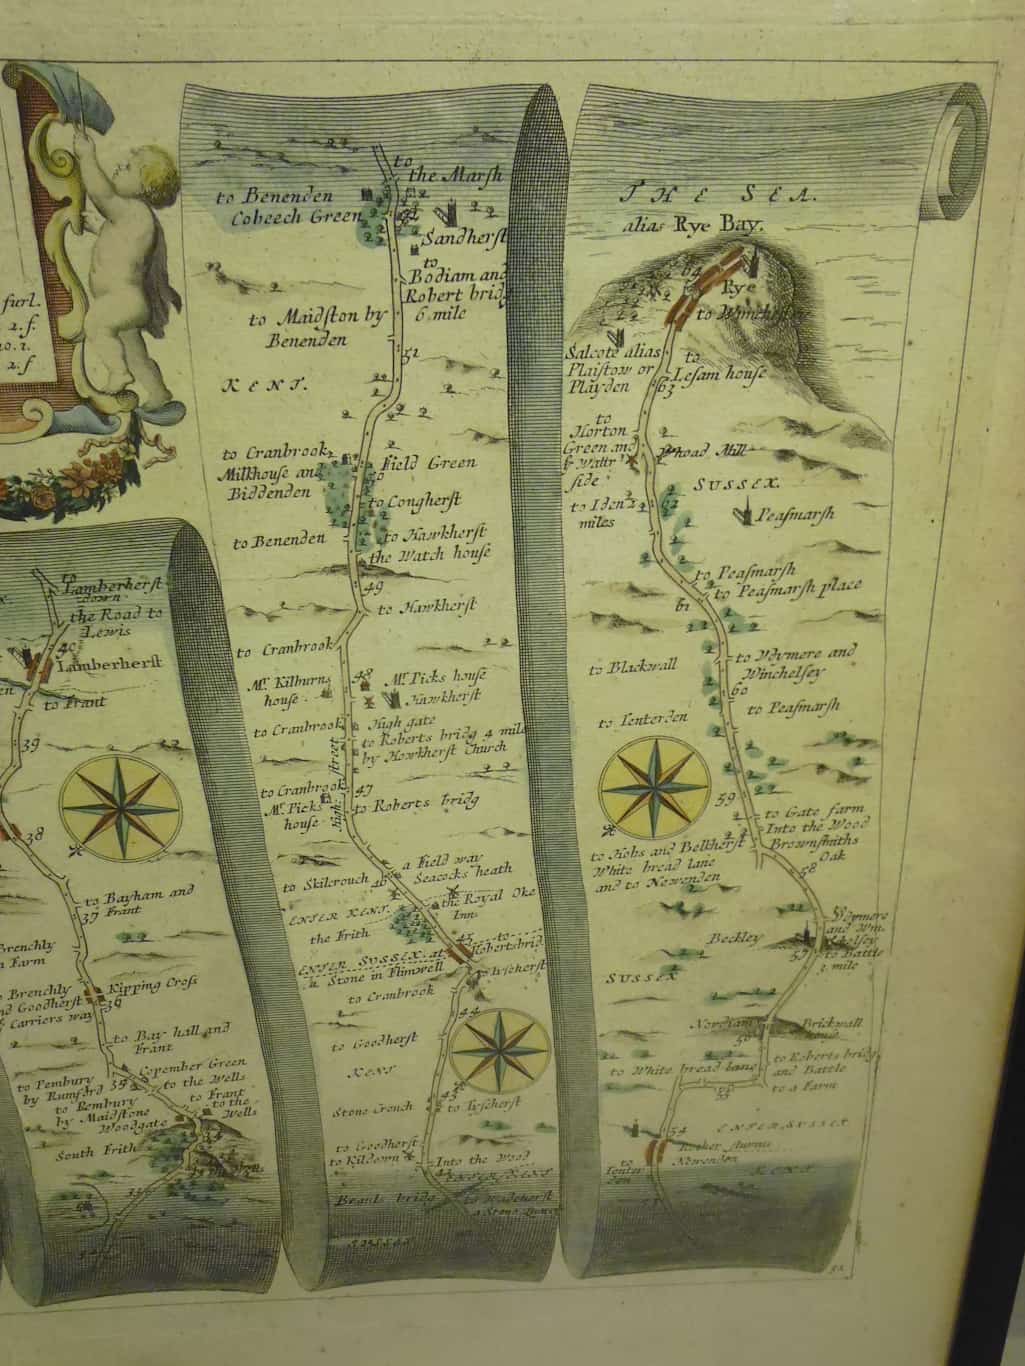 furl.
2.f.
2.f
Lamberherst
down
the Road to
Lewis
40
Lamberherst
to Frant
39
38
to Bayham and
37 Frant
Brenchly
Farm
Brenchly
Kipping Cross
and Goodherst
36
Carriers way
to Bay hall and
Frant
Copember Green
to Pembury
by Rumford
35
to the Wells
to Pembury
by Maidstone
Woodgate
to Frant
to the
Wells
34
South Frith
33
to
the Marsh
to Benenden
Cobeech Green
Sandherst
to
Bodiam and
Robert bridg
6 mile
to Maidston by
Benenden
51
KENT.
to Cranbrook
Milkhouse and
Biddenden
Field Green
50
to Congherst
to Benenden
to Hawkherst
the Watch house
49
to Hawkherst
to Cranbrook
48
Mr. Kilburns
house
Mr. Picks house
Hawkherst
to Cranbrook
High gate
to Roberts bridg 4 mile
by Hawkherst Church
High street
to Cranbrook
Mr. Picks
house
47
to Roberts bridg
a Field way
to Skilcrouch
46
Seacocks heath
ENTER KENT
the Royal Oke
Inn
the Frith
45
to
Robertsbridg
ENTER SUSSEX at
a Stone in Flimwell
to Tyseherst
to Cranbrook
44
to Goodherst
KENT
43
Stone Crouch
to Tyseherst
to Goodherst
to Kildown
Into the Wood
ENTER KENT
Brants bridg
to Wadeherst
SUSSEX
THE SEA.
alias Rye Bay.
64
Rye
to Winchelsey
Salcote alias
Plaistow or
Playden
to
Lesam house
63
to
Horton
Green and
Wattr
side
Whoad Mill
SUSSEX
to Iden 2
miles
62
Peasmarsh
to Peasmarsh
to Peasmarsh place
61
to Blackwall
to Ydymere and
Winchelsey
60
to Tenterden
to Peasmarsh
59
to Gate farm
Into the Wood
to Hobs and Belkherst
White bread lane
and to Nowenden
Brownsmiths
Oak
58
Ydymere
and Win-
chelsey
Beckley
57
to Battle
3 mile
SUSSEX
Nordiam
56
Brickwall
house
to White bread lane
to Roberts bridg
and Battle
to a Farm
55
54
ENTER SUSSEX
Rother fluvius
Nowenden
to
Tenter
den
KENT
53